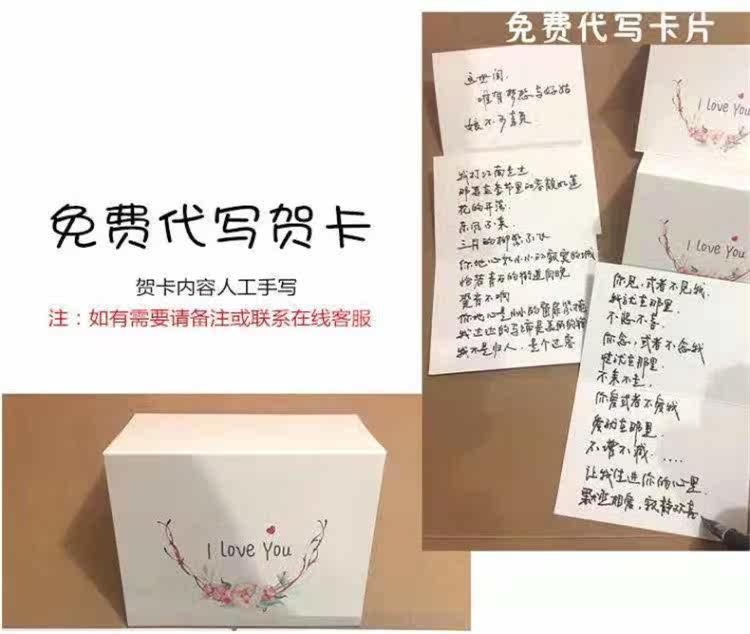 免费代写贺卡
贺卡内容人工手写
注：如有需要请备注或联系在线客服
I Love You
免费代写卡片
这世间,
唯有梦想与好姑
娘不可辜负
我打江南走过
那等在季节里的容颜如莲
花的开落
东风不来
三月的柳絮不飞
你地心如小小的寂寞的城
恰若青石的街道向晚
跫音不响
你地心是小小的窗扉紧掩
我达达的马蹄是美丽的错
我不是归人，是个过客
I Love You
I Love You
你见,或者不见我,
我就在那里,
不悲不喜
你念,或者不念我
情就在那里,
不来不去,
你爱或者不爱我
爱就在那里
不增不减.....
让我住进你的心里,
默然相爱,寂静欢喜